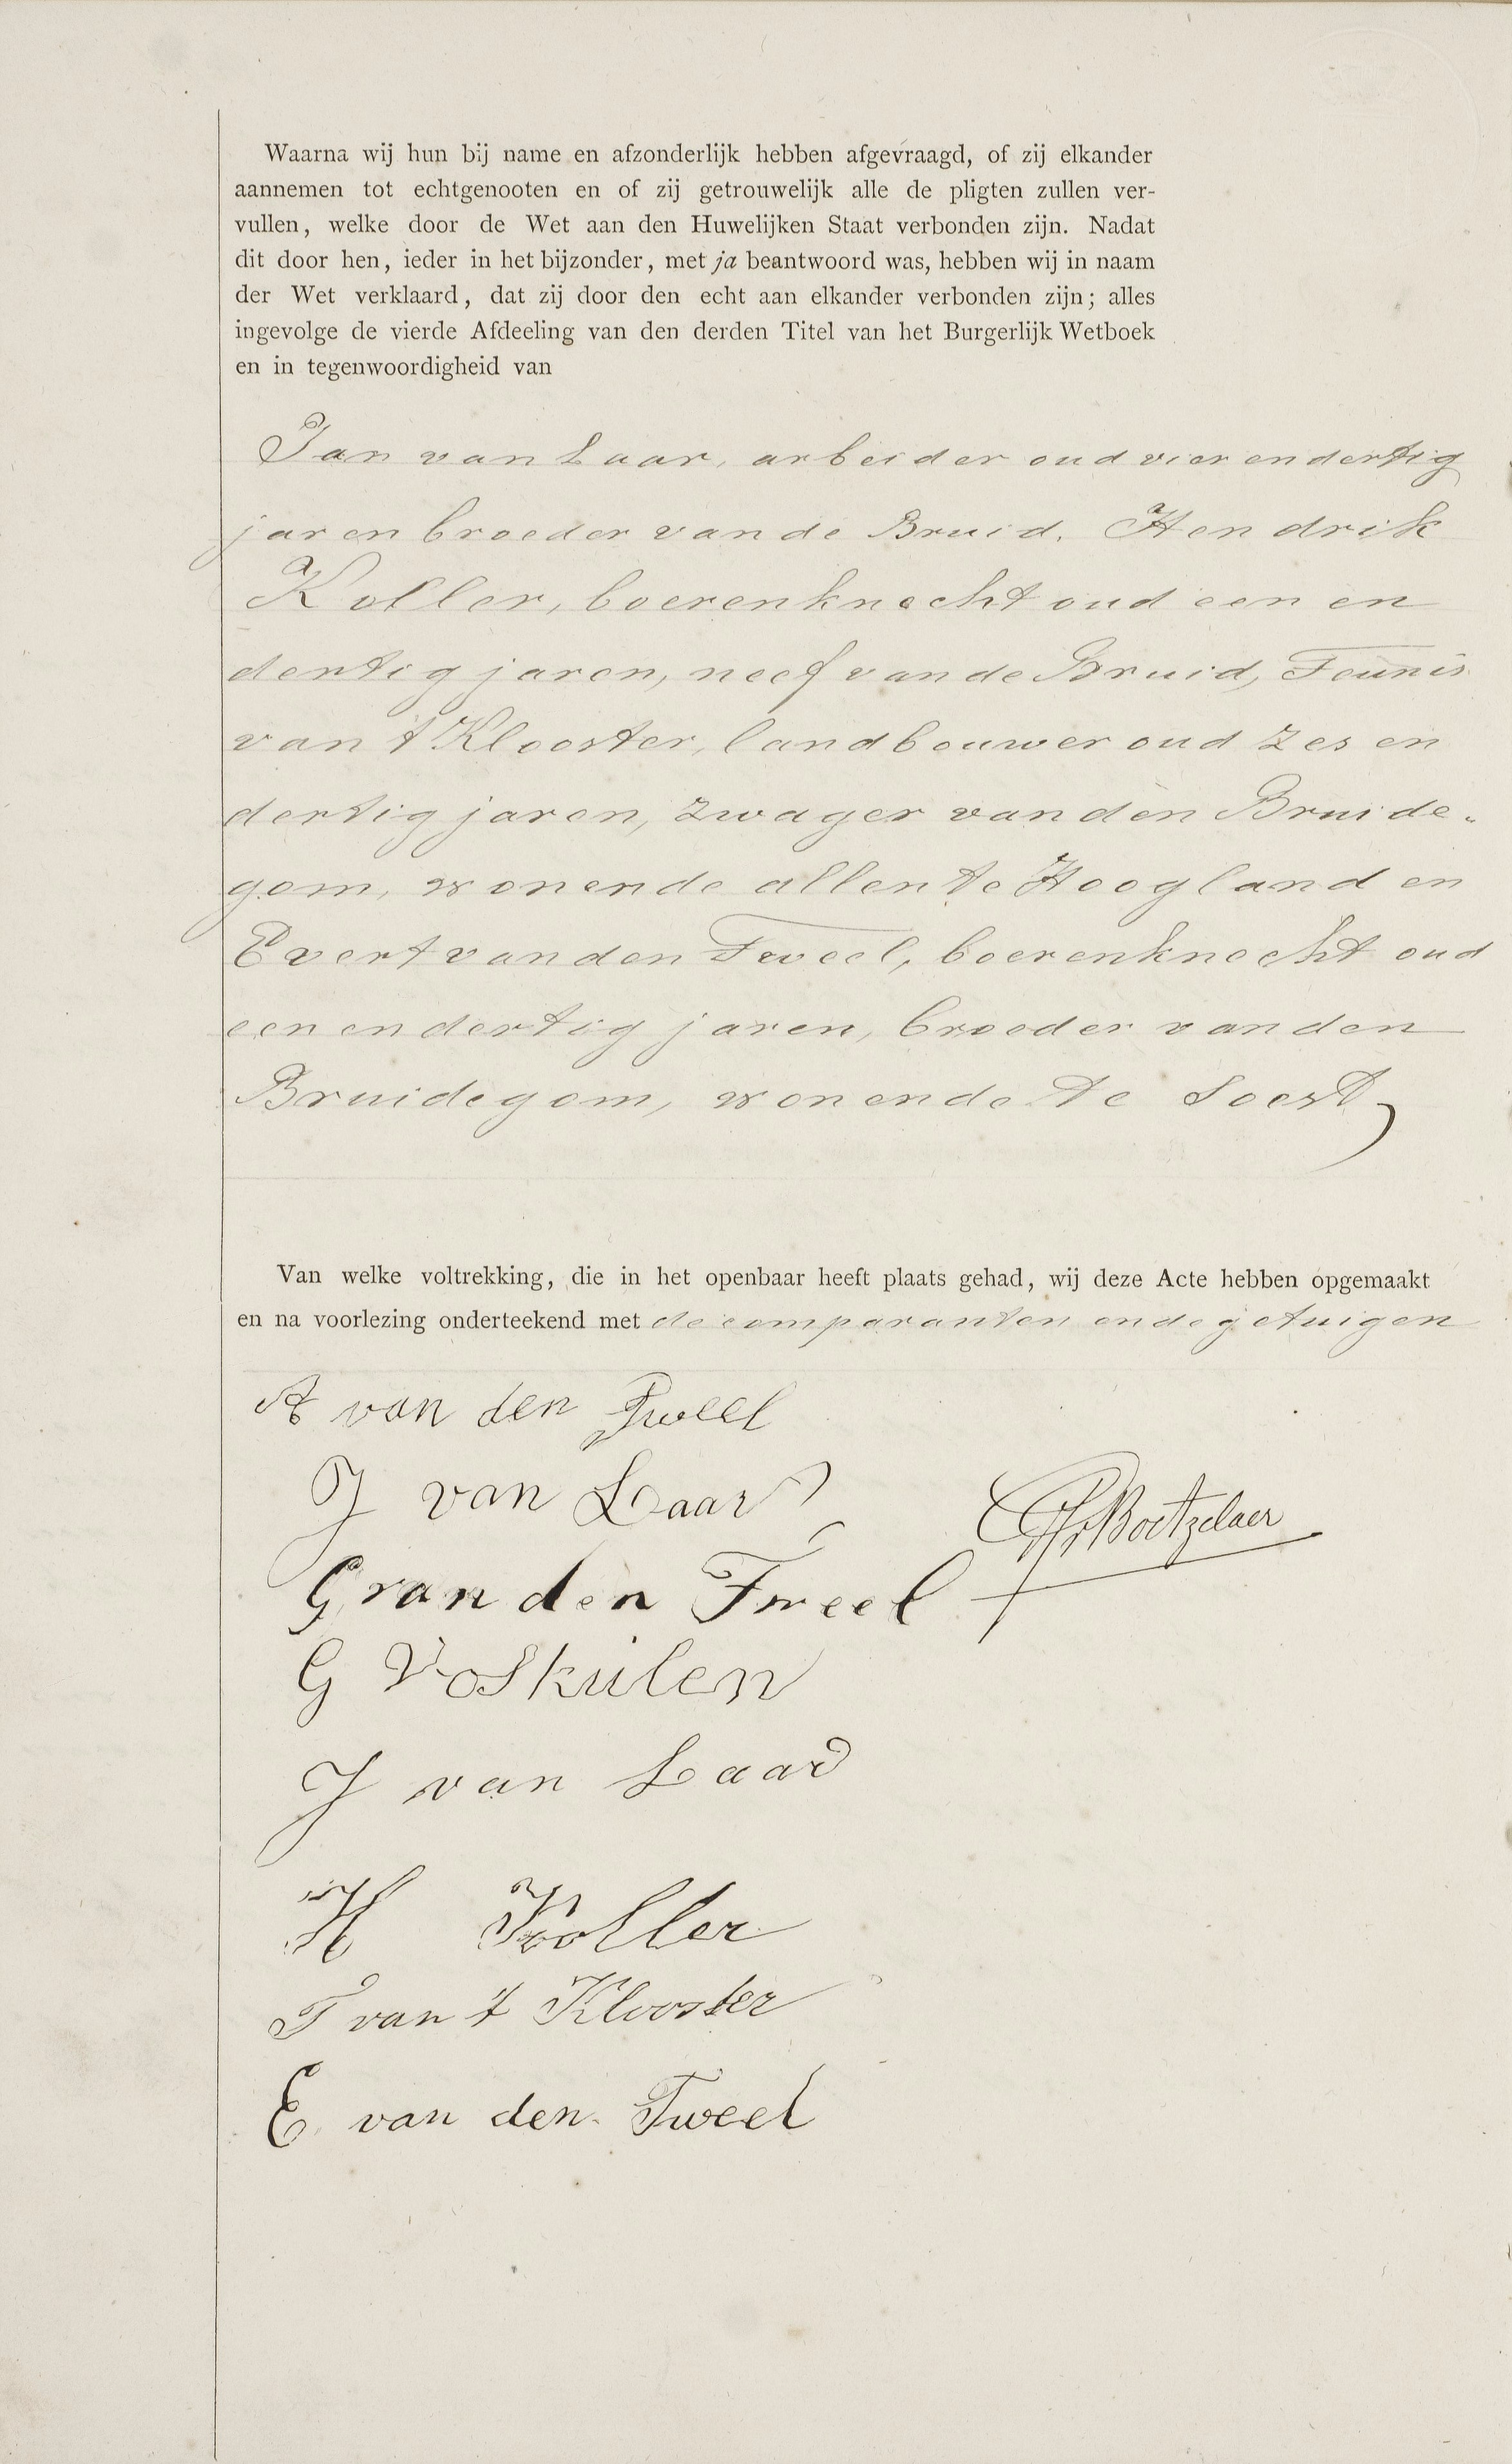 Waarna wij hun bij name en afzonderlijk hebben afgevraagd, of zij elkander
aannemen tot echtgenooten en of zij getrouwelijk alle de pligten zullen ver-
vullen, welke door de Wet aan den Huwelijken Staat verbonden zijn. Nadat
dit door hen, ieder in het bijzonder, met ja beantwoord was, hebben wij in naam
der Wet verklaard, dat zij door den echt aan elkander verbonden zijn; alles
ingevolge de vierde Afdeeling van den derden Titel van het Burgerlijk Wetboek
en in tegenwoordigheid van
Jan van Laar, arbeider oud vier en dertig
jaren broeder van de Bruid. Hendrik
Koller, boerenknecht oud een en
dertig jaren, neef van de Bruid, Teunis
van t Klooster, landbouwer oud zes en
dertig jaren, zwager van den Bruide-
gom, wonende allen te Hoogland en
Evert van den Tweel, boerenknecht oud
een en dertig jaren, broeder van den
Bruidegom, wonende te Soest
Van welke voltrekking, die in het openbaar heeft plaats gehad, wij deze Acte hebben opgemaakt
en na voorlezing onderteekend met de comparanten en de getuigen
A van den Tweel
J van Laar
Boetzelaer
G van den Tweel
G Voskuilen
J van Laar
H Koller
T van 't Klooster
E. van den Tweel